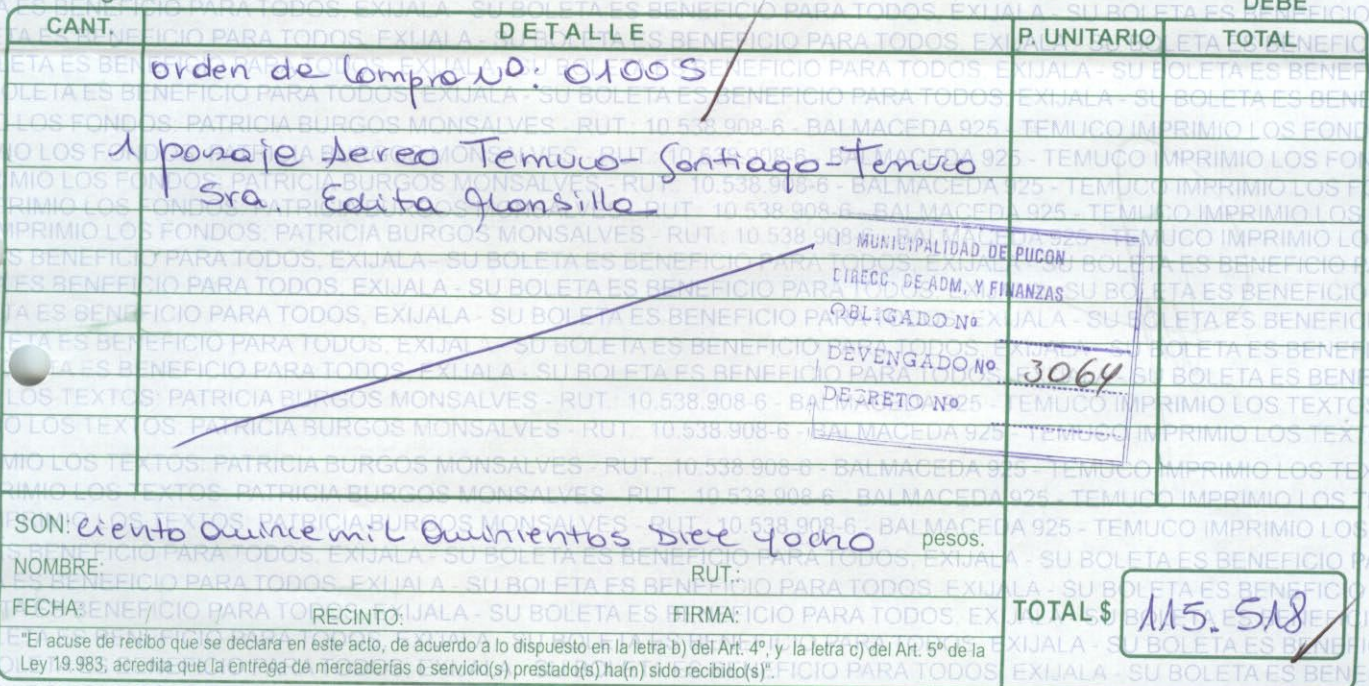 DEBE
CANT. DETALLE P. UNITARIO TOTAL
orden de Compra Nº: 01005
1 pasaje Aereo Temuco - Santiago - Temuco
Sra. Edita Mansilla
I MUNICIPALIDAD DE PUCON
DIRECC. DE ADM. Y FINANZAS
OBLIGADO Nº
DEVENGADO Nº 3064
DECRETO Nº
SON: Ciento Quince mil Quinientos Diez y ocho pesos.
NOMBRE: RUT.:
FECHA: / / RECINTO: FIRMA: TOTAL $ 115.518
"El acuse de recibo que se declara en este acto, de acuerdo a lo dispuesto en la letra b) del Art. 4º, y la letra c) del Art. 5º de la
Ley 19.983, acredita que la entrega de mercaderías o servicio(s) prestado(s) ha(n) sido recibido(s)".
SU BOLETA ES BENEFICIO PARA TODOS, EXIJALA
PATRICIA BURGOS MONSALVES - RUT.: 10.538.908-6 - BALMACEDA 925 - TEMUCO IMPRIMIO LOS FONDOS
PATRICIA BURGOS MONSALVES - RUT.: 10.538.908-6 - BALMACEDA 925 - TEMUCO IMPRIMIO LOS TEXTOS